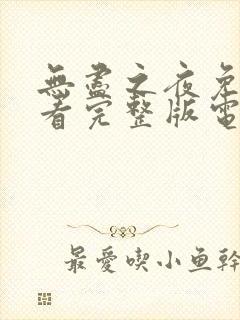 無盡之夜免
看完整版電
最愛喫小魚幹